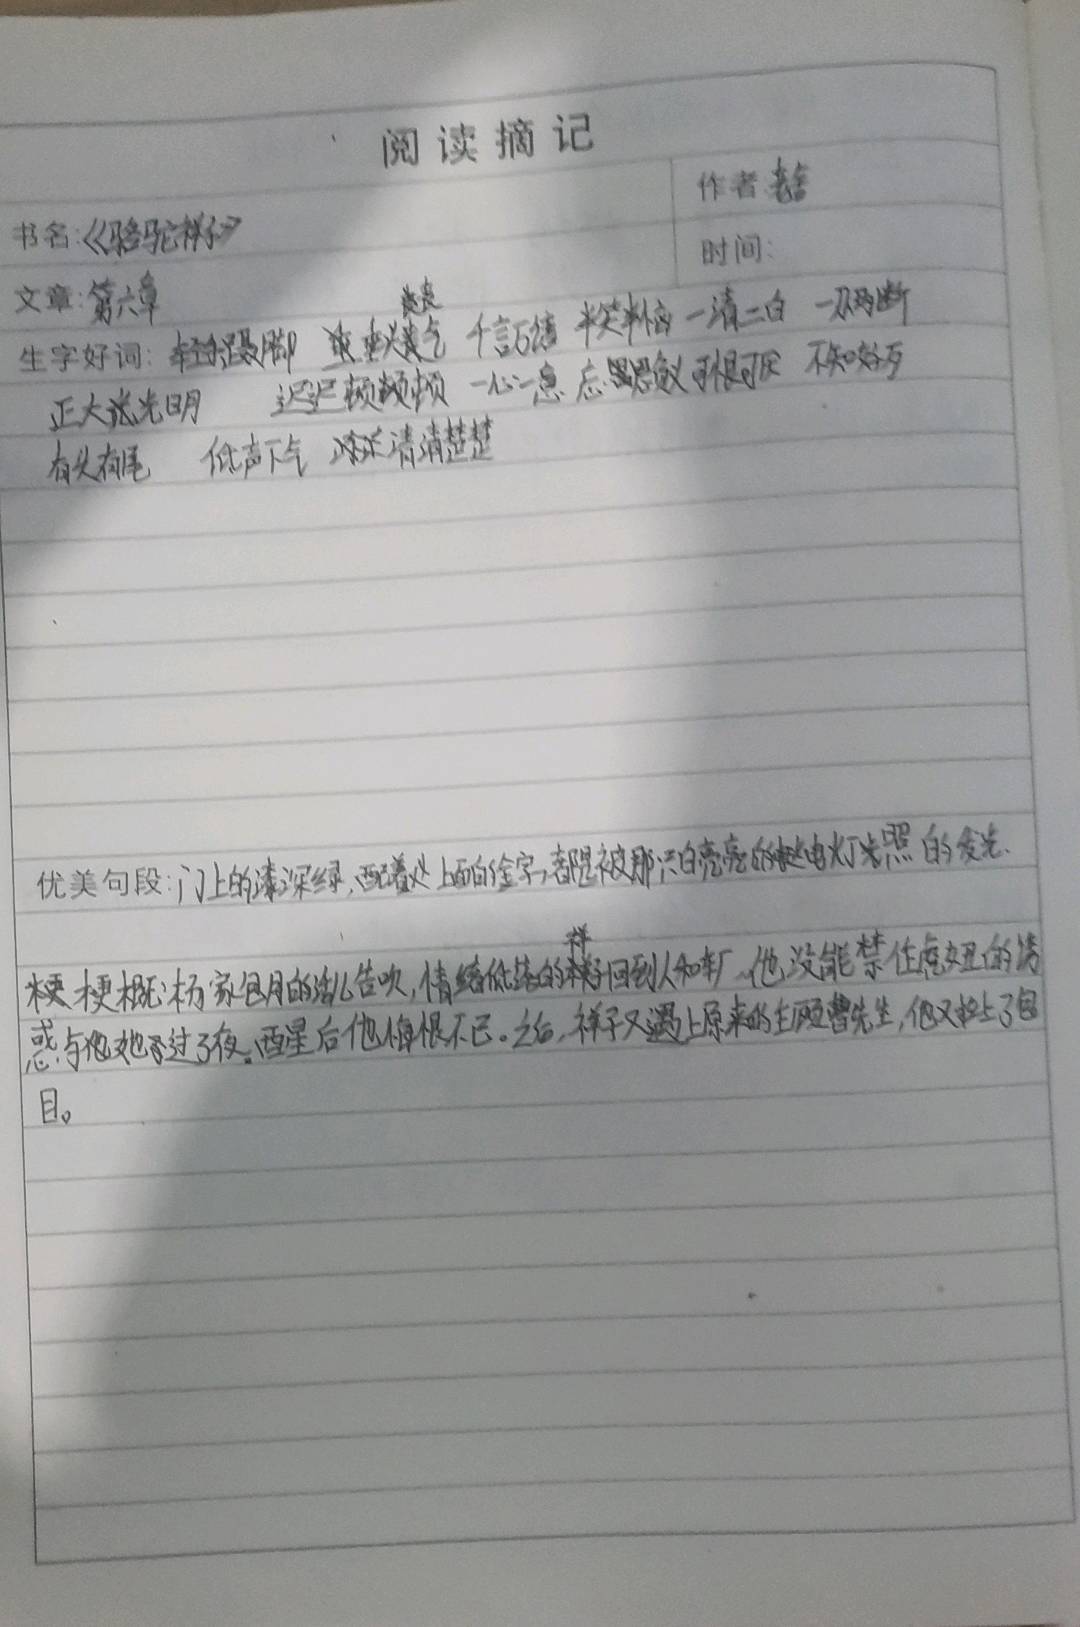 阅读摘记
书名:《骆驼祥子》
作者 老舍
时间:
文章:第六章
生字好词: 轻手蹑脚 垂头丧气 千言万语 半笑半恼 一清二白 一刀两断
正大光明 迟迟顿顿 一心一意 忘恩负义 可恨可厌 不知好歹
有头有尾 低声下气 清清楚楚
优美句段:门上的漆深绿,配着上面的金字,都被那只白亮亮的电灯照的发光.
梗概:杨家包月的活儿告吹,情绪低落的祥子回到人和车厂,他没能禁住虎妞的诱
惑,与她过了夜,酒醒后他悔恨不已。之后,祥子又遇上原来的主顾曹先生,他又拉上了包
月。